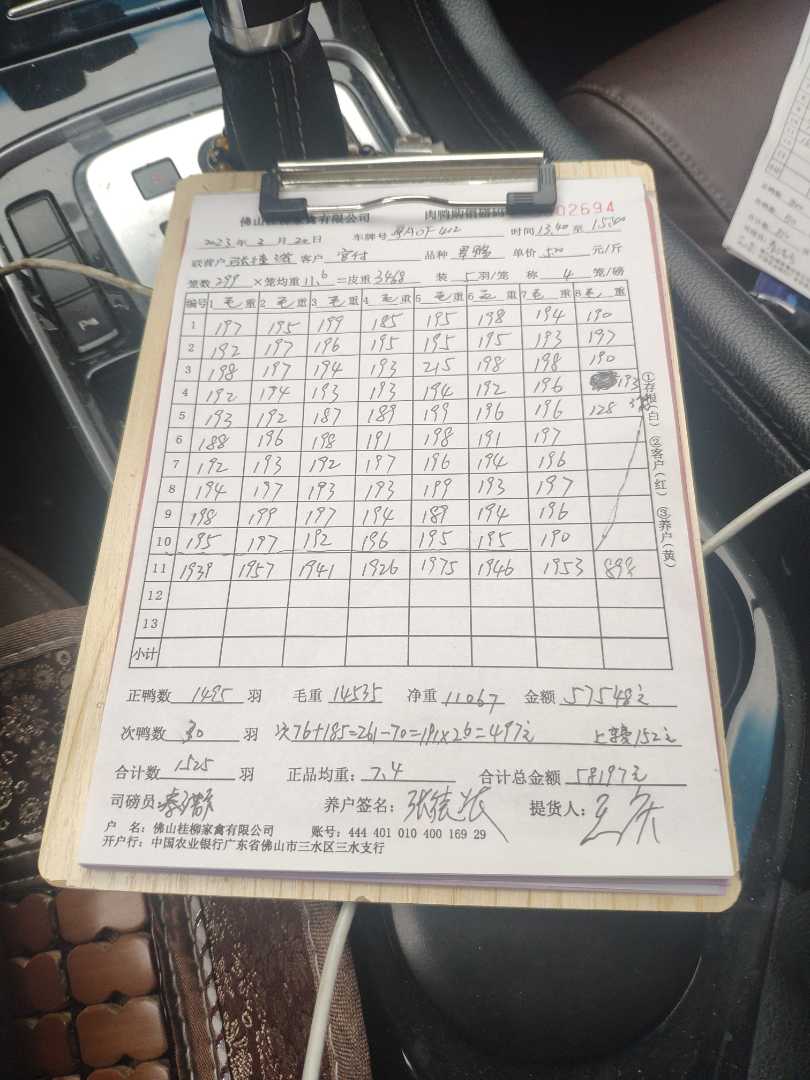 佛山桂柳家禽有限公司 肉鸭购销磅码 02694
2023年2月20日 车牌号 粤A0F402 时间13.40至15.40
联营户 客户 品种 单价 元/斤
笼数299×笼均重11.6=皮重3468 装5羽/笼 称4笼/磅
编号 1毛重 2毛重 3毛重 4毛重 5毛重 6毛重 7毛重 8毛重
1 197 195 199 185 195 198 194 190
2 192 197 196 195 195 195 193 197
3 198 197 194 193 215 198 198 190
4 192 194 193 193 194 192 196 193
5 193 192 187 189 199 196 196 128
6 188 196 198 191 198 191 197
7 192 193 192 197 196 194 196
8 194 197 193 193 199 193 197
9 198 199 197 194 189 194 196
10 195 197 192 196 195 195 190
11 1939 1957 1941 1926 1975 1946 1953 898
12
13
小计
①存根(白) ②客户(红) ③养户(黄)
正鸭数 1495 羽 毛重 14535 净重 11067 金额 57548元
次鸭数 30 羽 次76+185=261-70=191×26=497元 152元
合计数 1525 羽 正品均重: 7.4 合计总金额 58197元
司磅员: 养户签名: 提货人:
户 名:佛山桂柳家禽有限公司 账号:444 401 010 400 169 29
开户行:中国农业银行广东省佛山市三水区三水支行